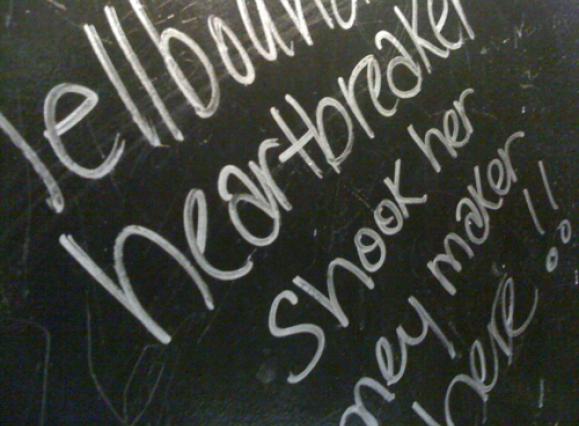 ellboun
heartbreaker
Shook her
ney maker
here!!